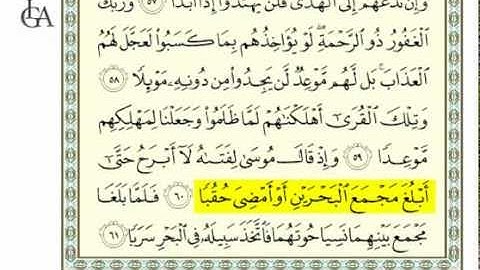 GA
وَإِن تَدْعُهُمْ إِلَى ٱلْهُدَىٰ فَلَن يَهْتَدُوٓا۟ إِذًا أَبَدًا ٥٧ وَرَبُّكَ
ٱلْغَفُورُ ذُو ٱلرَّحْمَةِ ۖ لَوْ يُؤَاخِذُهُم بِمَا كَسَبُوا۟ لَعَجَّلَ لَهُمُ
ٱلْعَذَابَ ۚ بَل لَّهُم مَّوْعِدٌ لَّن يَجِدُوا۟ مِن دُونِهِۦ مَوْئِلًا ٥٨
وَتِلْكَ ٱلْقُرَىٰٓ أَهْلَكْنَٰهُمْ لَمَّا ظَلَمُوا۟ وَجَعَلْنَا لِمَهْلِكِهِم
مَّوْعِدًا ٥٩ وَإِذْ قَالَ مُوسَىٰ لِفَتَىٰهُ لَآ أَبْرَحُ حَتَّىٰٓ
أَبْلُغَ مَجْمَعَ ٱلْبَحْرَيْنِ أَوْ أَمْضِىَ حُقُبًا ٦٠ فَلَمَّا بَلَغَا
مَجْمَعَ بَيْنِهِمَا نَسِيَا حُوتَهُمَا فَٱتَّخَذَ سَبِيلَهُۥ فِى ٱلْبَحْرِ سَرَبًا ٦١